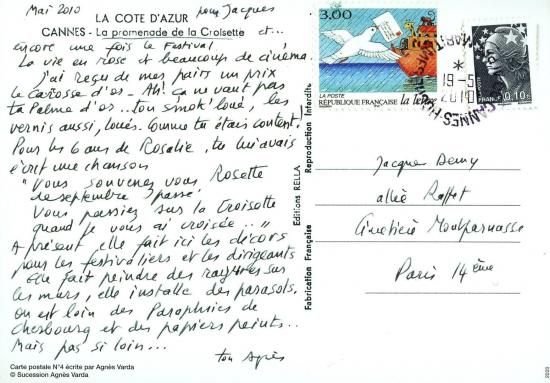 Mai 2010
pour Jacques
LA COTE D'AZUR
CANNES - La promenade de la Croisette et...
encore une fois le Festival
La vie en rose et beaucoup de cinéma
J'ai reçu de mes pairs un prix
le Carosse d'or - Ah! ça ne vaut pas
ta Palme d'or... ton smok' loué, les
vernis aussi, loués. Comme tu étais content!
Pour les 6 ans de Rosalie, tu lui avais
écrit une chanson
"Vous souvenez vous Rosette
de septembre passé
Vous passiez sur la Croisette
quand je vous ai croisée..."
A présent elle fait ici les décors
pour les festivaliers et les dirigeants
Elle fait peindre des rayures sur
les murs, elle installe des parasols.
On est loin des Parapluies de
Cherbourg et des papiers peints...
Mais pas si loin...
ton Agnès
Carte postale N°4 écrite par Agnès Varda
© Sucession Agnès Varda
Fabrication Française
Editions RELLA
Reproduction Interdite
3,00
LA POSTE
RÉPUBLIQUE FRANÇAISE
19-5
2010
FRANCE
0,10€
Jacques Demy
allée Raffet
Cimetière Montparnasse
Paris 14ème
2020